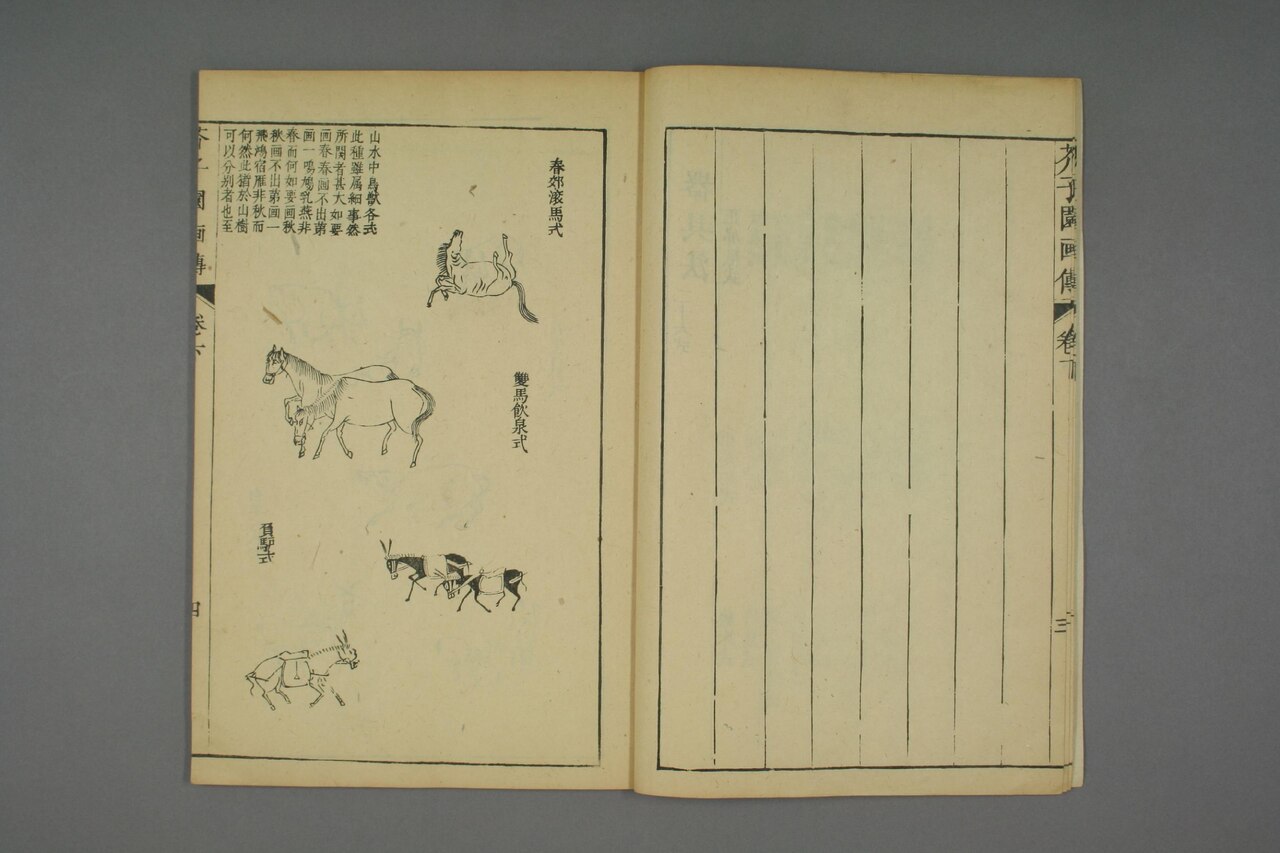 芥子園画傳
卷
三
春郊滚馬式
雙馬飲泉式
山水中鳥獸各式
此種雖属細事然
所関者甚大如要
画春春画不出第
画一鳴鳩乳燕非
春而何如要画秋
秋画不出第画一
飛鴻宿雁非秋而
何然此猶於山樹
可以分别者也至
負驢式
芥子園画傳
卷
四